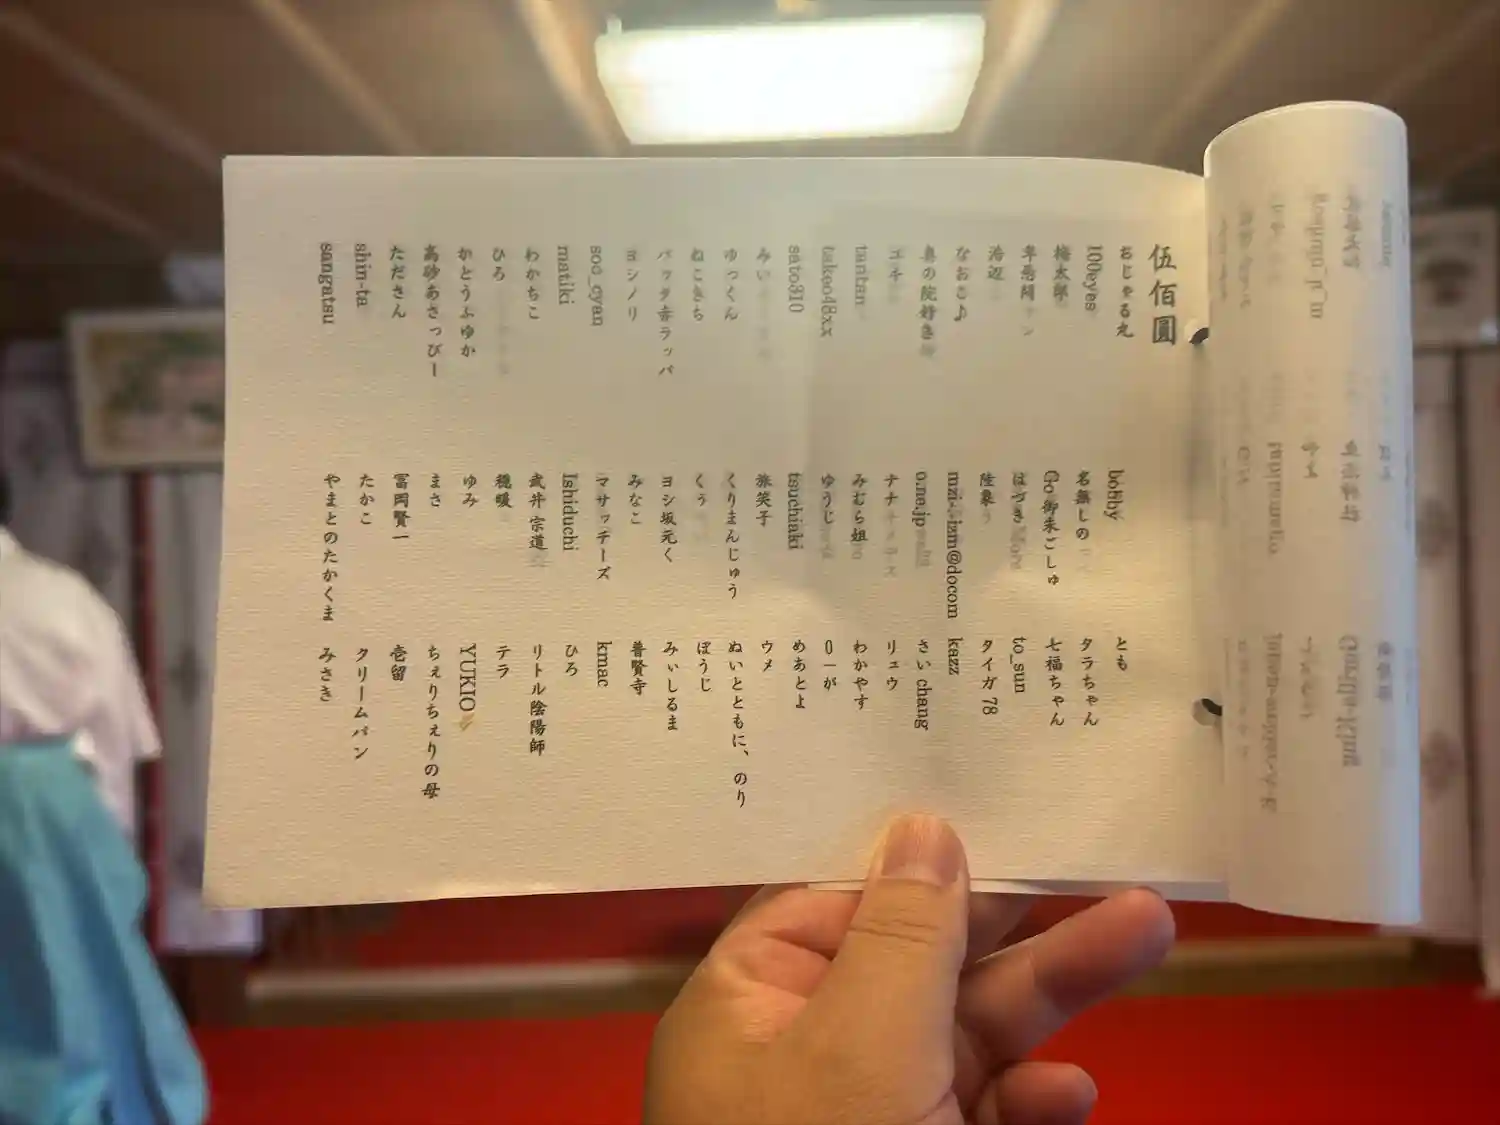 伍佰圓
おじゃる丸
100eyes
梅太郎
治辺
なおこ♪
奥の院好き
ユキ
tantan
takeo48xx
sato310
みい
ゆっくん
ねこきち
バッタ赤ラッパ
ヨシノリ
soo_cyan
matiki
わかちこ
ひろ
かとうふゆか
高砂あさっぴー
たださん
shin-ta
sangatsu
bobby
名無しの
Go御朱ごしゅ
はづき
陸象
o.na.jp
ナナ
みむら姐
ゆうじ
tsuchiaki
旅笑子
くりまんじゅう
くぅ
ヨシ坂元く
みなこ
マサッチーズ
Ishiduchi
武井 宗道
穏暖
ゆみ
まさ
冨岡賢一
たかこ
やまとのたかくま
とも
タラちゃん
七福ちゃん
to_sun
タイガ 78
kazz
さい chang
リュウ
わかやす
0ーが
めあとよ
ウメ
ぬいとともに、のり
ぽうじ
みぃしるま
普賢寺
kmac
ひろ
リトル陰陽師
テラ
YUKIO
ちぇりちぇりの母
壱留
クリームパン
みさき